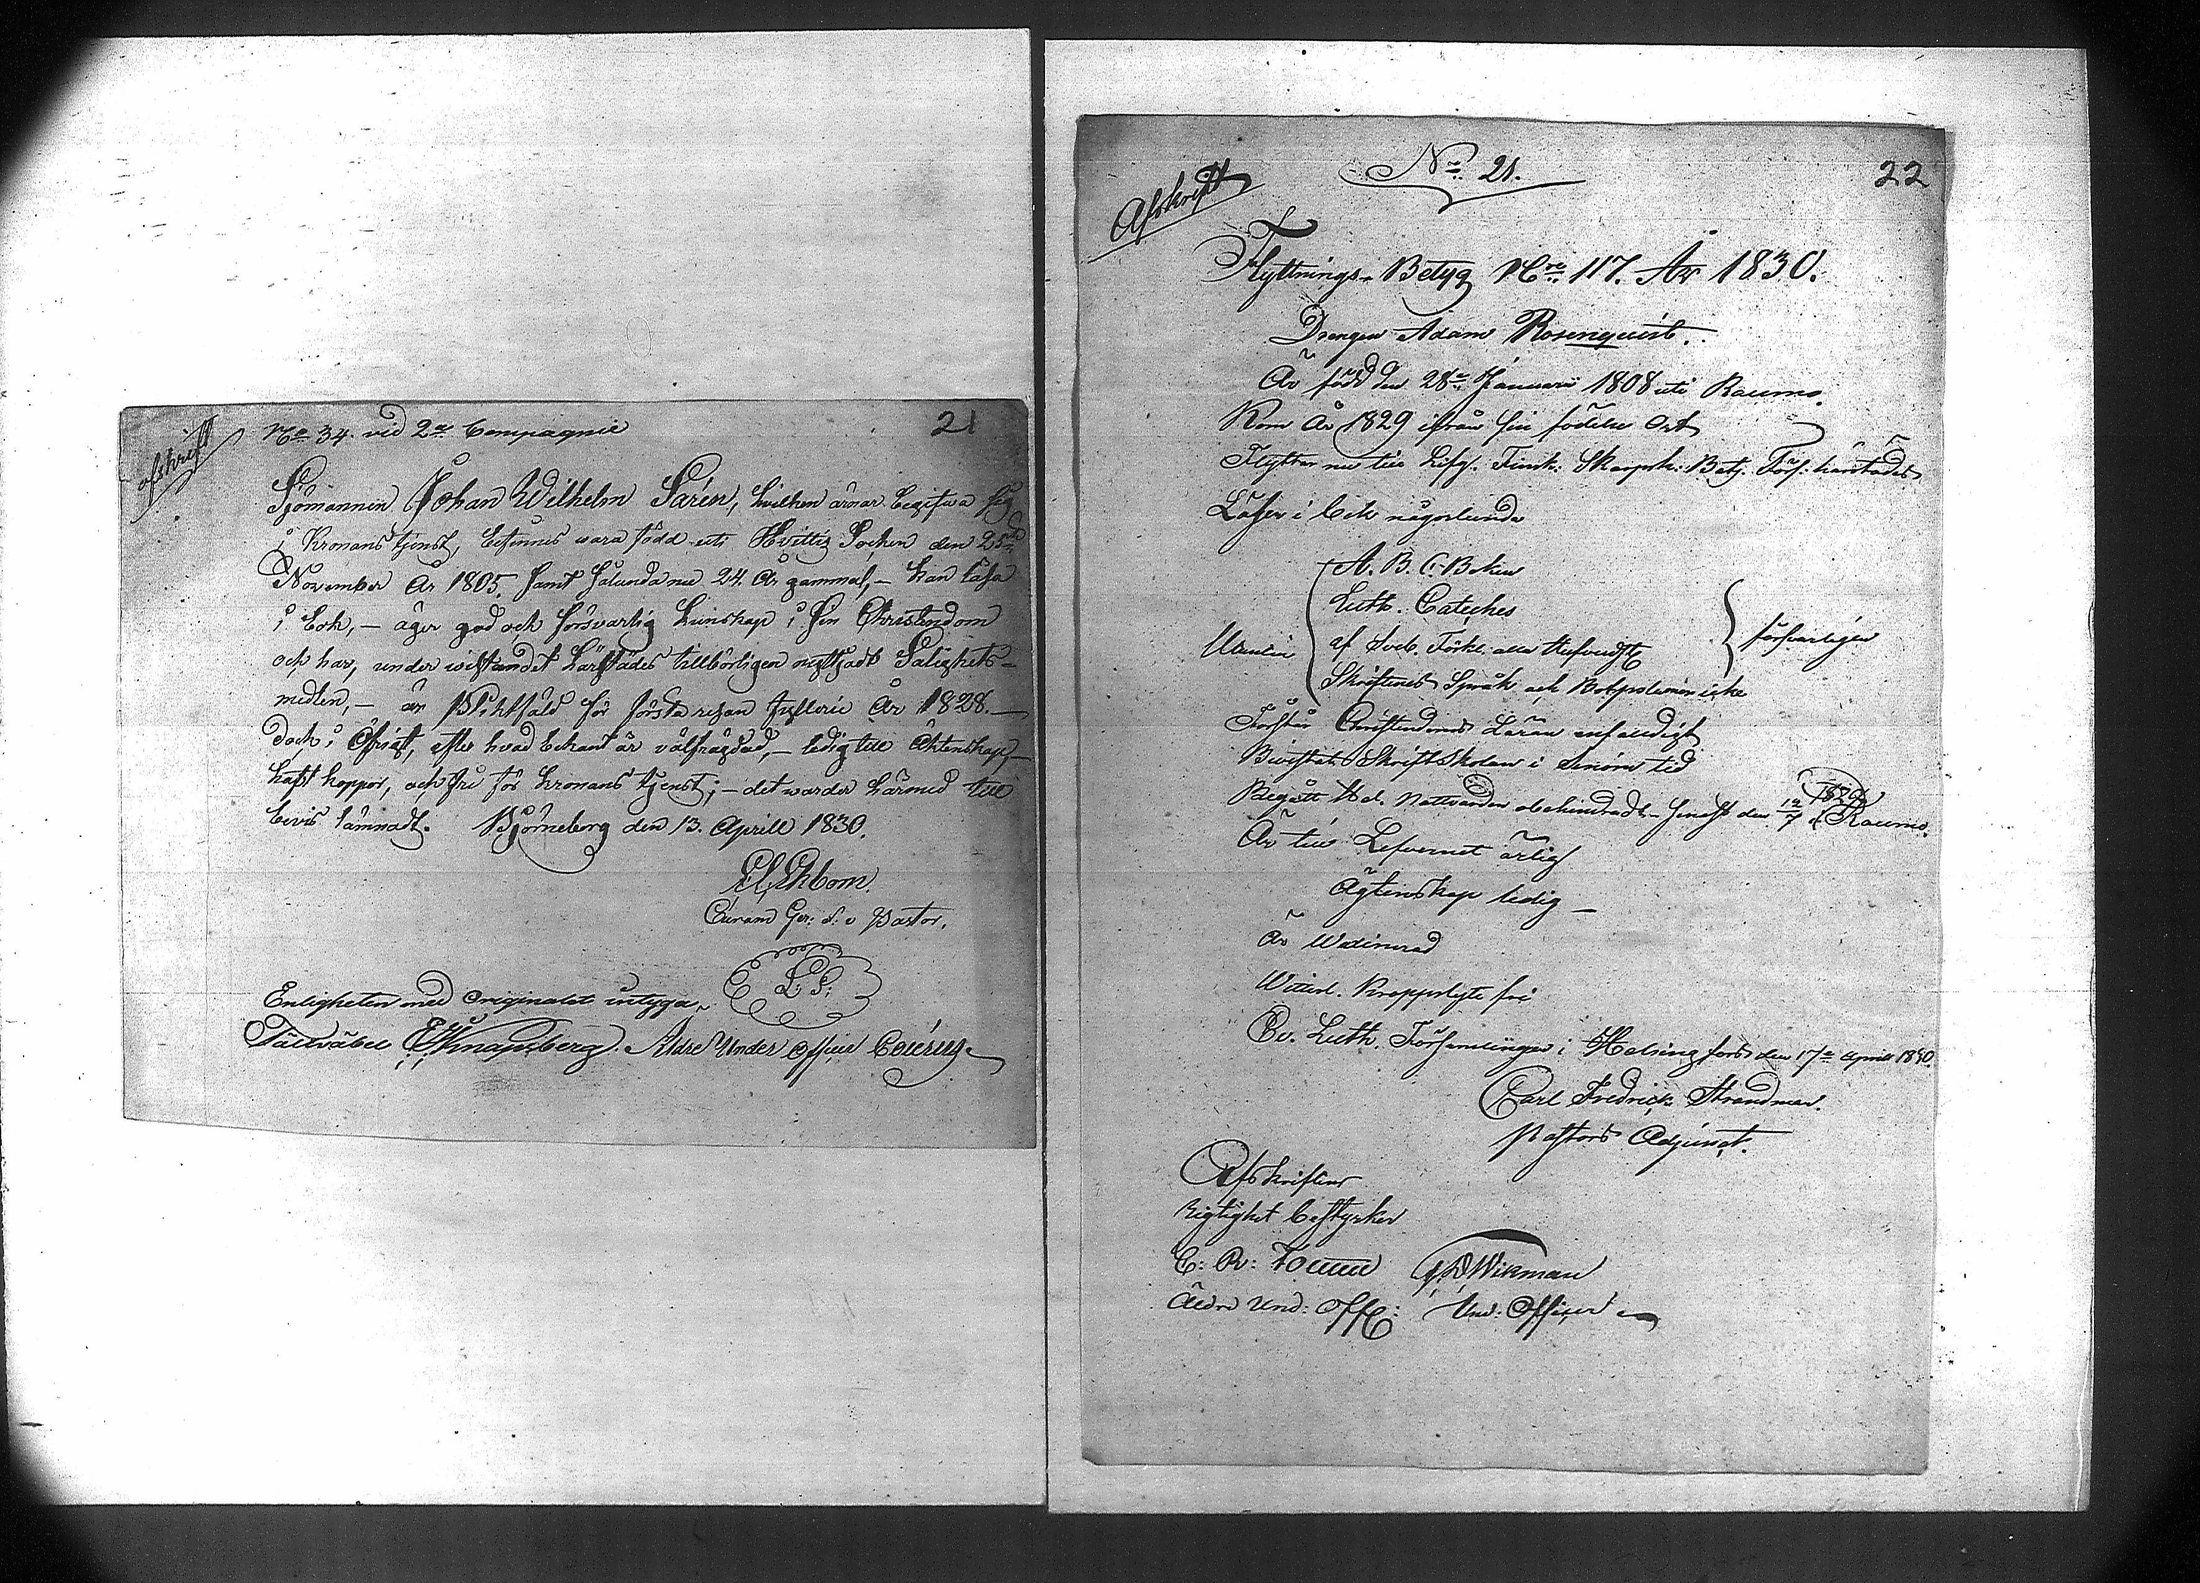 afskrift
No 34. vid 2a Compagnie
21
Sjömannen Johan Wilhelm Sarén, hvilken ärnar begifva sig
i Kronans tjenst, befinnes vara född uti Hvittis Socken den 25te
November År 1805, samt sålunda nu 24. År gammal, – kan läsa
i bok, – äger god och försvarlig kunskap i sin Christendom
och har, under vistandet härstädes tillbörligen nyttjadt Salighets-
medlen, – är Pliktfäld för första resan fylleri År 1828. –
dock i öfrigt, efter hvad bekant är välfrägdad, – ledig till Äktenskap, –
haft koppor, och fri för Kronans tjenst; – det warder härmed till
bevis lämnadt. Björneborg den 13. Aprill 1830.
Ekbom.
v Pastor.
L. S.
Enligheten med originalet intyga
Fältväbel Knapsberg. Äldre Under Officer
Afskrift
No 21.
22
Flyttnings-Betyg Nro 117. År 1830.
Drengen Adam Rosenquist.
Är född den 28de Januarii 1808 uti Raumo.
Kom År 1829 ifrån sin födelse Ort
Flyttar nu till Lifg. Finsk: Skarpsk: Bat: Förs: härstädes
Läser i bok någorlunda
Utanlär
A. B. C. Boken
Luth. Cateches
af Sveb. Förkl. alla Hufvudst
Skriftenes Språk och Botpsalmen icke
försvarligen
Förstår Christendoms Läran enfaldigt
Bivistat Skriftskolan i sinom tid
Begått H. d. Nattvarden obehindradt senast den 12/7 1829 i Raumo.
Är till Lefvernet ärlig
Ägtenskap ledig –
Är Waccinerad
Veterl. Kroppslyte fri
Ev. Luth. Församlingen i Helsingfors den 17de Aprill 1830.
Carl Fredrick Strandman.
Pastors Adjunct.
Afskriftens
rigtighet bestyrker
C: R: Wikman
Äldre Und: Off: Und: Officer